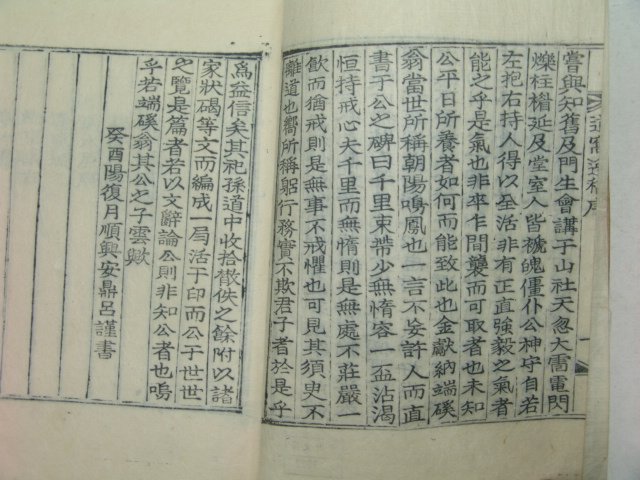 嘗與知舊及門生會講于山社天忽大雷電閃
爍柱楷延及堂室人皆褫魄僵仆公神守自若
左抱右持人得以全活非有正直強毅之氣者
能之乎是氣也非卒乍間襲而可取者也未知
公平日所養者如何而能致此也金獻納端磎
翁當世所稱朝陽鳴鳳也一言不妄許人而直
書于公之碑曰千里束帶少無惰容一盃沾渴
恒持戒心夫千里而無惰則是無處不莊嚴一
飮而猶戒則是無事不戒懼也可見其須臾不
離道也嚮所稱躬行務實不欺君子者於是乎
爲益信矣其祀孫道中收拾散佚之餘附以諸
家狀碣等文而編成一局活于印而公于世世
之覽是篇者若以文辭論公則非知公者也嗚
乎若端磎翁其公之子雲歟
癸酉陽復月順興安鼎呂謹書